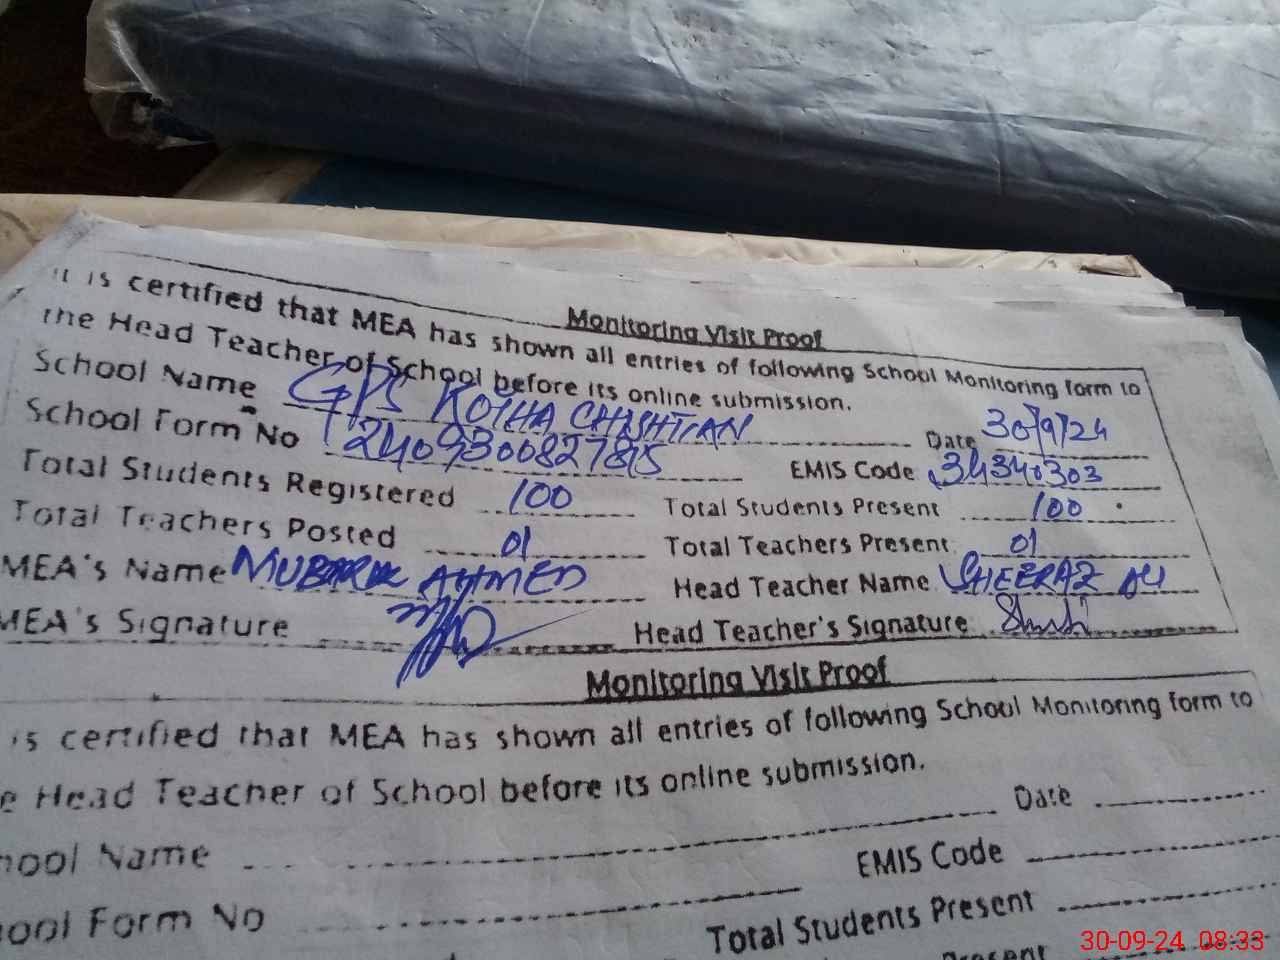 Monitoring Visit Proof
It is certified that MEA has shown all entries of following School Monitoring form to
the Head Teacher of School before its online submission.
School Name GPS KOTHA CHISHTIAN Date 30/9/24
School Form No 24093008278815 EMIS Code 34340303
Total Students Registered 100 Total Students Present 100
Total Teachers Posted 01 Total Teachers Present 01
MEA's Name MUBARAK AHMED Head Teacher Name SHEERAZ ALI
MEA's Signature Head Teacher's Signature
Monitoring Visit Proof
is certified that MEA has shown all entries of following School Monitoring form to
e Head Teacher of School before its online submission.
hool Name Date
ool Form No EMIS Code
Total Students Present
Present
30-09-24 08:33